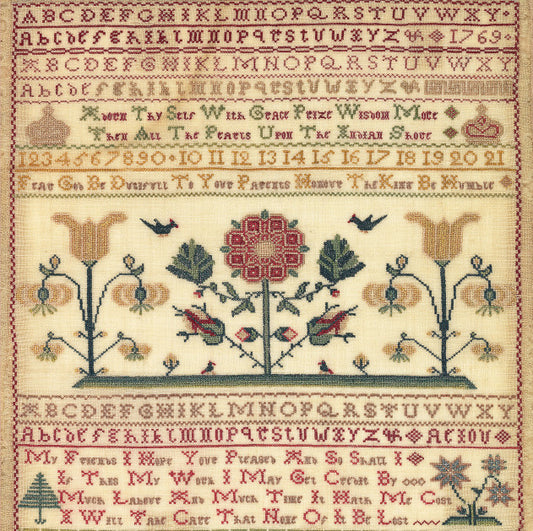 ABCDEFGHIKLMNOPQRSTUVWXY
Abcdefghiklmnopqrstuvwxyz & 1769
ABCDEFGHIKLMNOPQRSTUVWXY
Abcdefghiklmnopqrstuvwxyz &
Adorn Thy Self With Grace Prize Wisdom More
Then All The Pearls Upon The Indian Shore
1234567890 · 10 11 12 13 14 15 16 17 18 19 20 21
Fear God Be Dutifull To Your Parents Honour The King Be Humble
ABCDEFGHIKLMNOPQRSTUVWXY
Abcdefghiklmnopqrstuvwxyz & AEIOU
My Friends I Hope Your Pleased And So Shall I
If This My Work I May Get Credit By
Much Labour And Much Time It Hath Me Cost
I Will Take Care That None Of It Be Lost